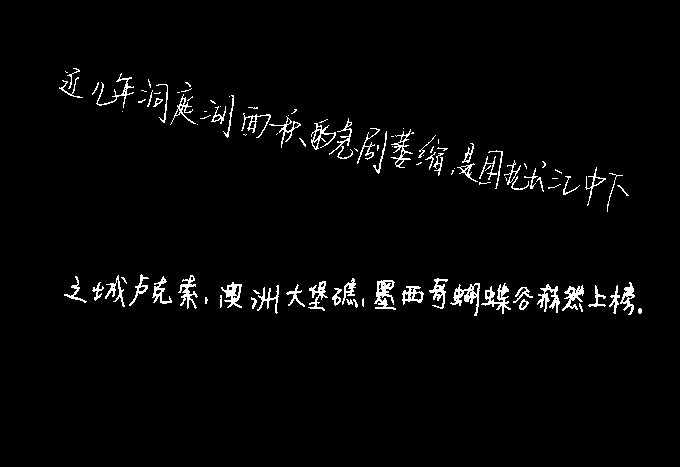 近几年洞庭湖面积急剧萎缩,是困扰长江中下
之城卢克索,澳洲大堡礁,墨西哥蝴蝶谷赫然上榜。